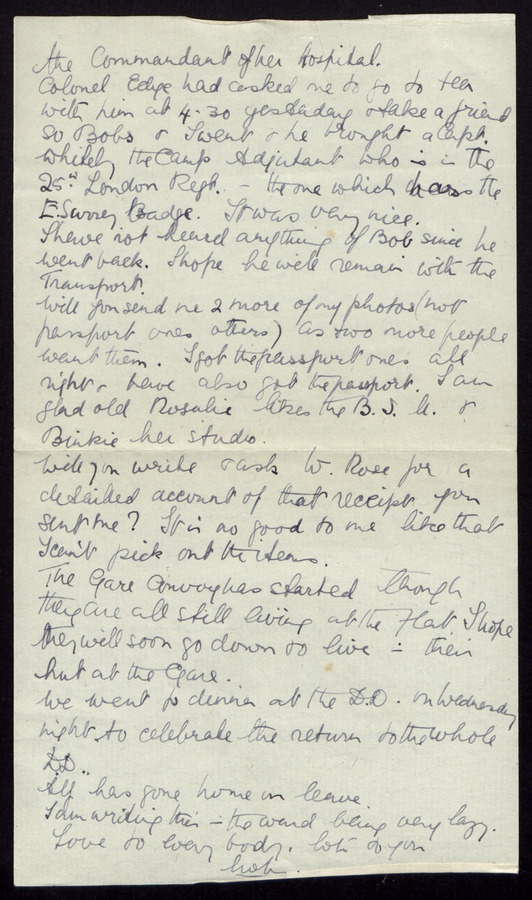 the Commandant of her hospital.
Colonel Edge had asked me to go to tea
with him at 4.30 yesterday & take a friend
so Bobs & I went & he brought a Capt.
Whitely the Camp Adjutant who is in the
25th London Regt. - the one which has the
E. Surrey Badge. It was very nice.
I have not heard anything of Bob since he
went back. I hope he will remain with the
Transport.
Will you send me 2 more of my photos (not
passport ones others) as two more people
want them. I got the passport ones all
right & have also got the passport. I am
glad old Rosalie likes the B.J. U. &
Binkie her studio.
Will you write & ask W. Rose for a
detailed account of that receipt you
sent me? It is no good to me like that
I can't pick out the items.
The Gare Convoy has started though
they are all still living at the Flat. I hope
they will soon go down to live in their
hut at the Gare.
We went to dinner at the D.D. on Wednesday
night to celebrate the return to the whole
D.D.
Alf has gone home on leave.
I am writing this in the ward being very lazy.
Love to everybody. lots to you